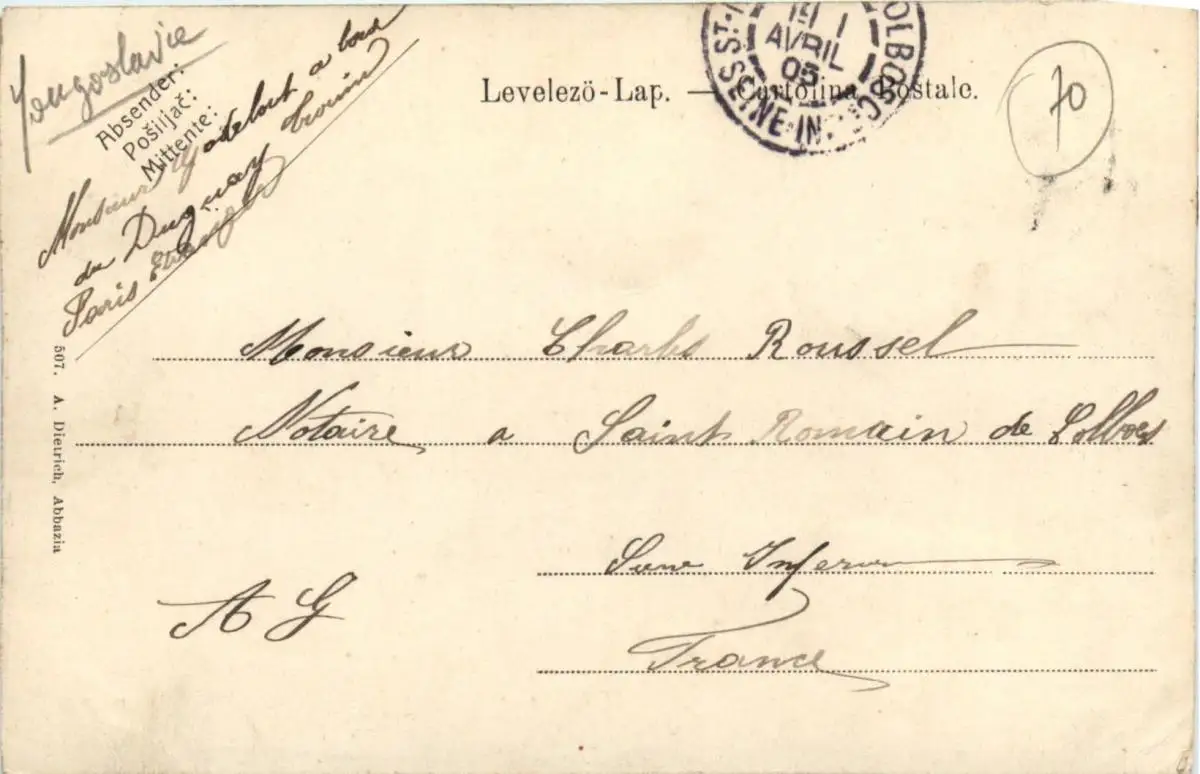 Yougoslavie
Absender:
Pošiljač:
Mittente:
Monsieur a bord
du Duguay Trouin
Paris Etranger
Levelezö-Lap. — Cartolina Postale.
ST-R OLBOSC
19 1
AVRIL
05
SEINE-INF
70
Monsieur Charles Roussel
Notaire a Saint Romain de Colbosc
Seine Inferieure
France
A G
507. A. Dietrich, Abbazia